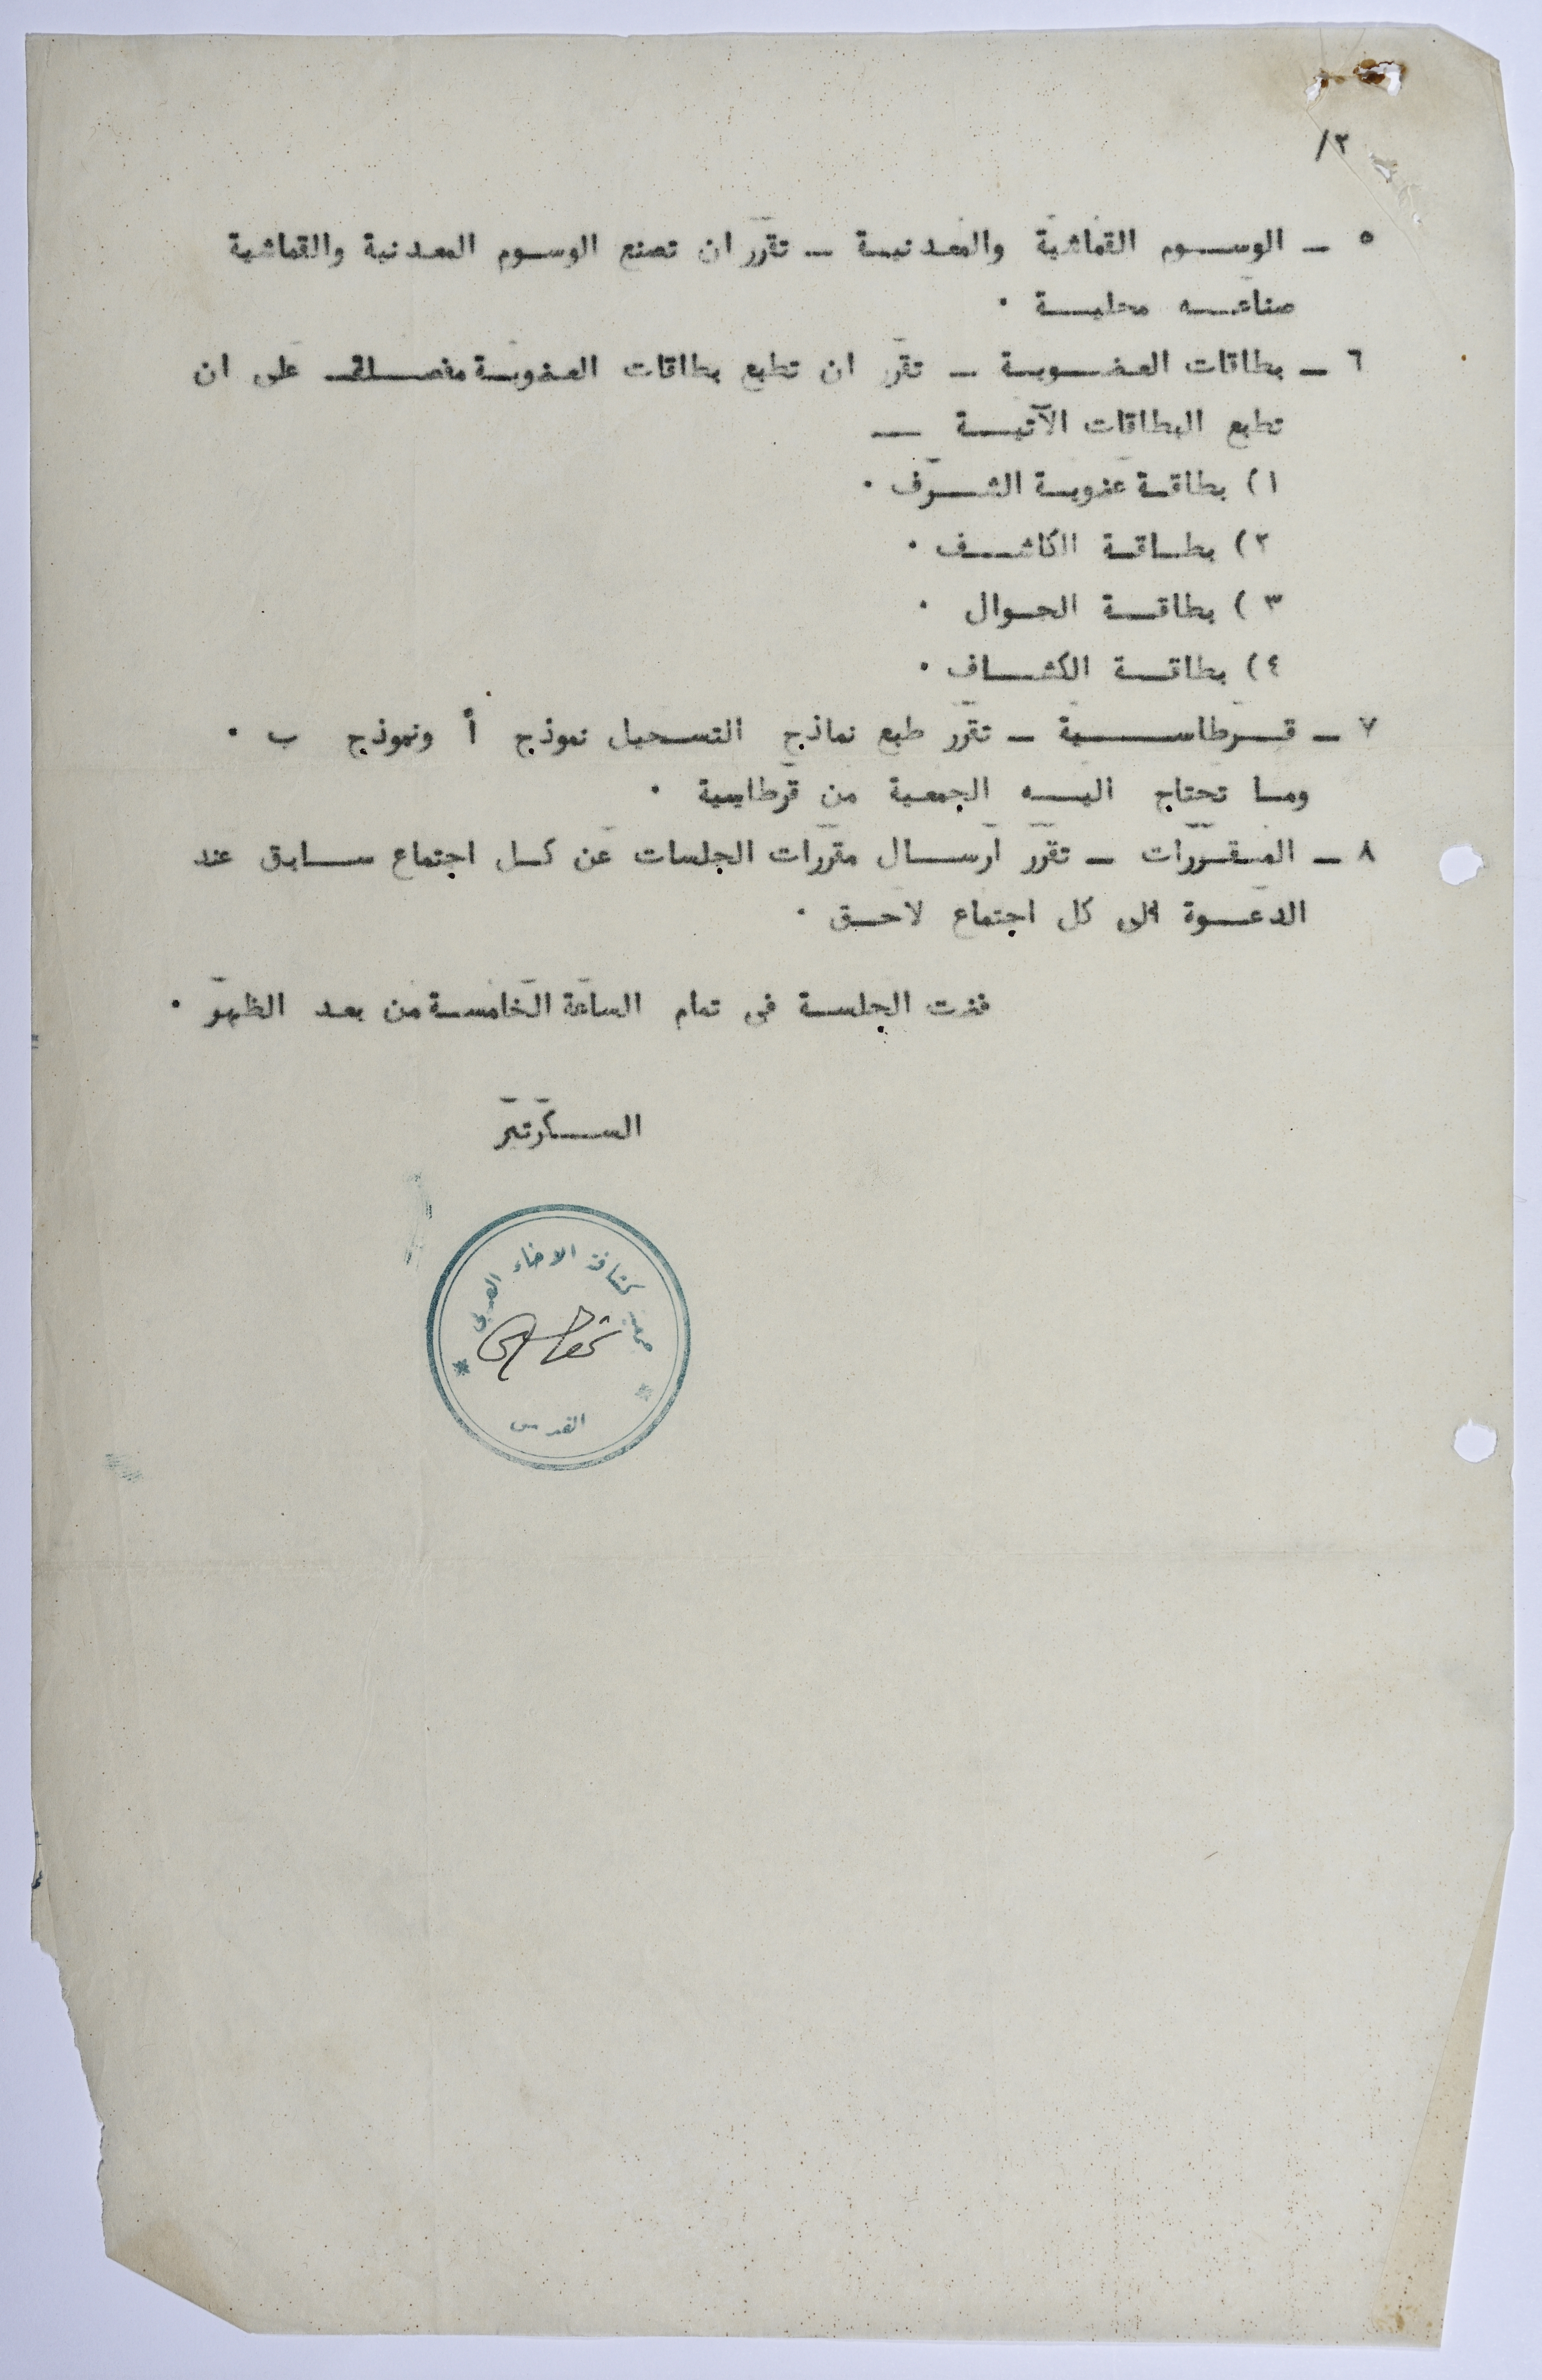 ٢/
٥ ــ الوسوم القماشية والمعدنية ــ تقرر ان تصنع الوسوم المعدنية والقماشية
صناعه محلية ٠
٦ ــ بطاقات العضوية ــ تقرر ان تطبع بطاقات العضوية مفصلة على ان
تطبع البطاقات الآتية ــ
١) بطاقة عضوية الشرف ٠
٢) بطاقة الكاشف ٠
٣) بطاقة الجوال ٠
٤) بطاقة الكشاف ٠
٧ ــ قرطاسية ــ تقرر طبع نماذج التسجيل نموذج أ ونموذج ب ٠
وما تحتاج اليه الجمعية من قرطاسية ٠
٨ ــ المقررات ــ تقرر ارسال مقررات الجلسات عن كل اجتماع سابق عند
الدعوة الى كل اجتماع لاحق ٠
فضت الجلسة في تمام الساعة الخامسة من بعد الظهر ٠
السكرتير
كشافة الاخاء العربي
القدس